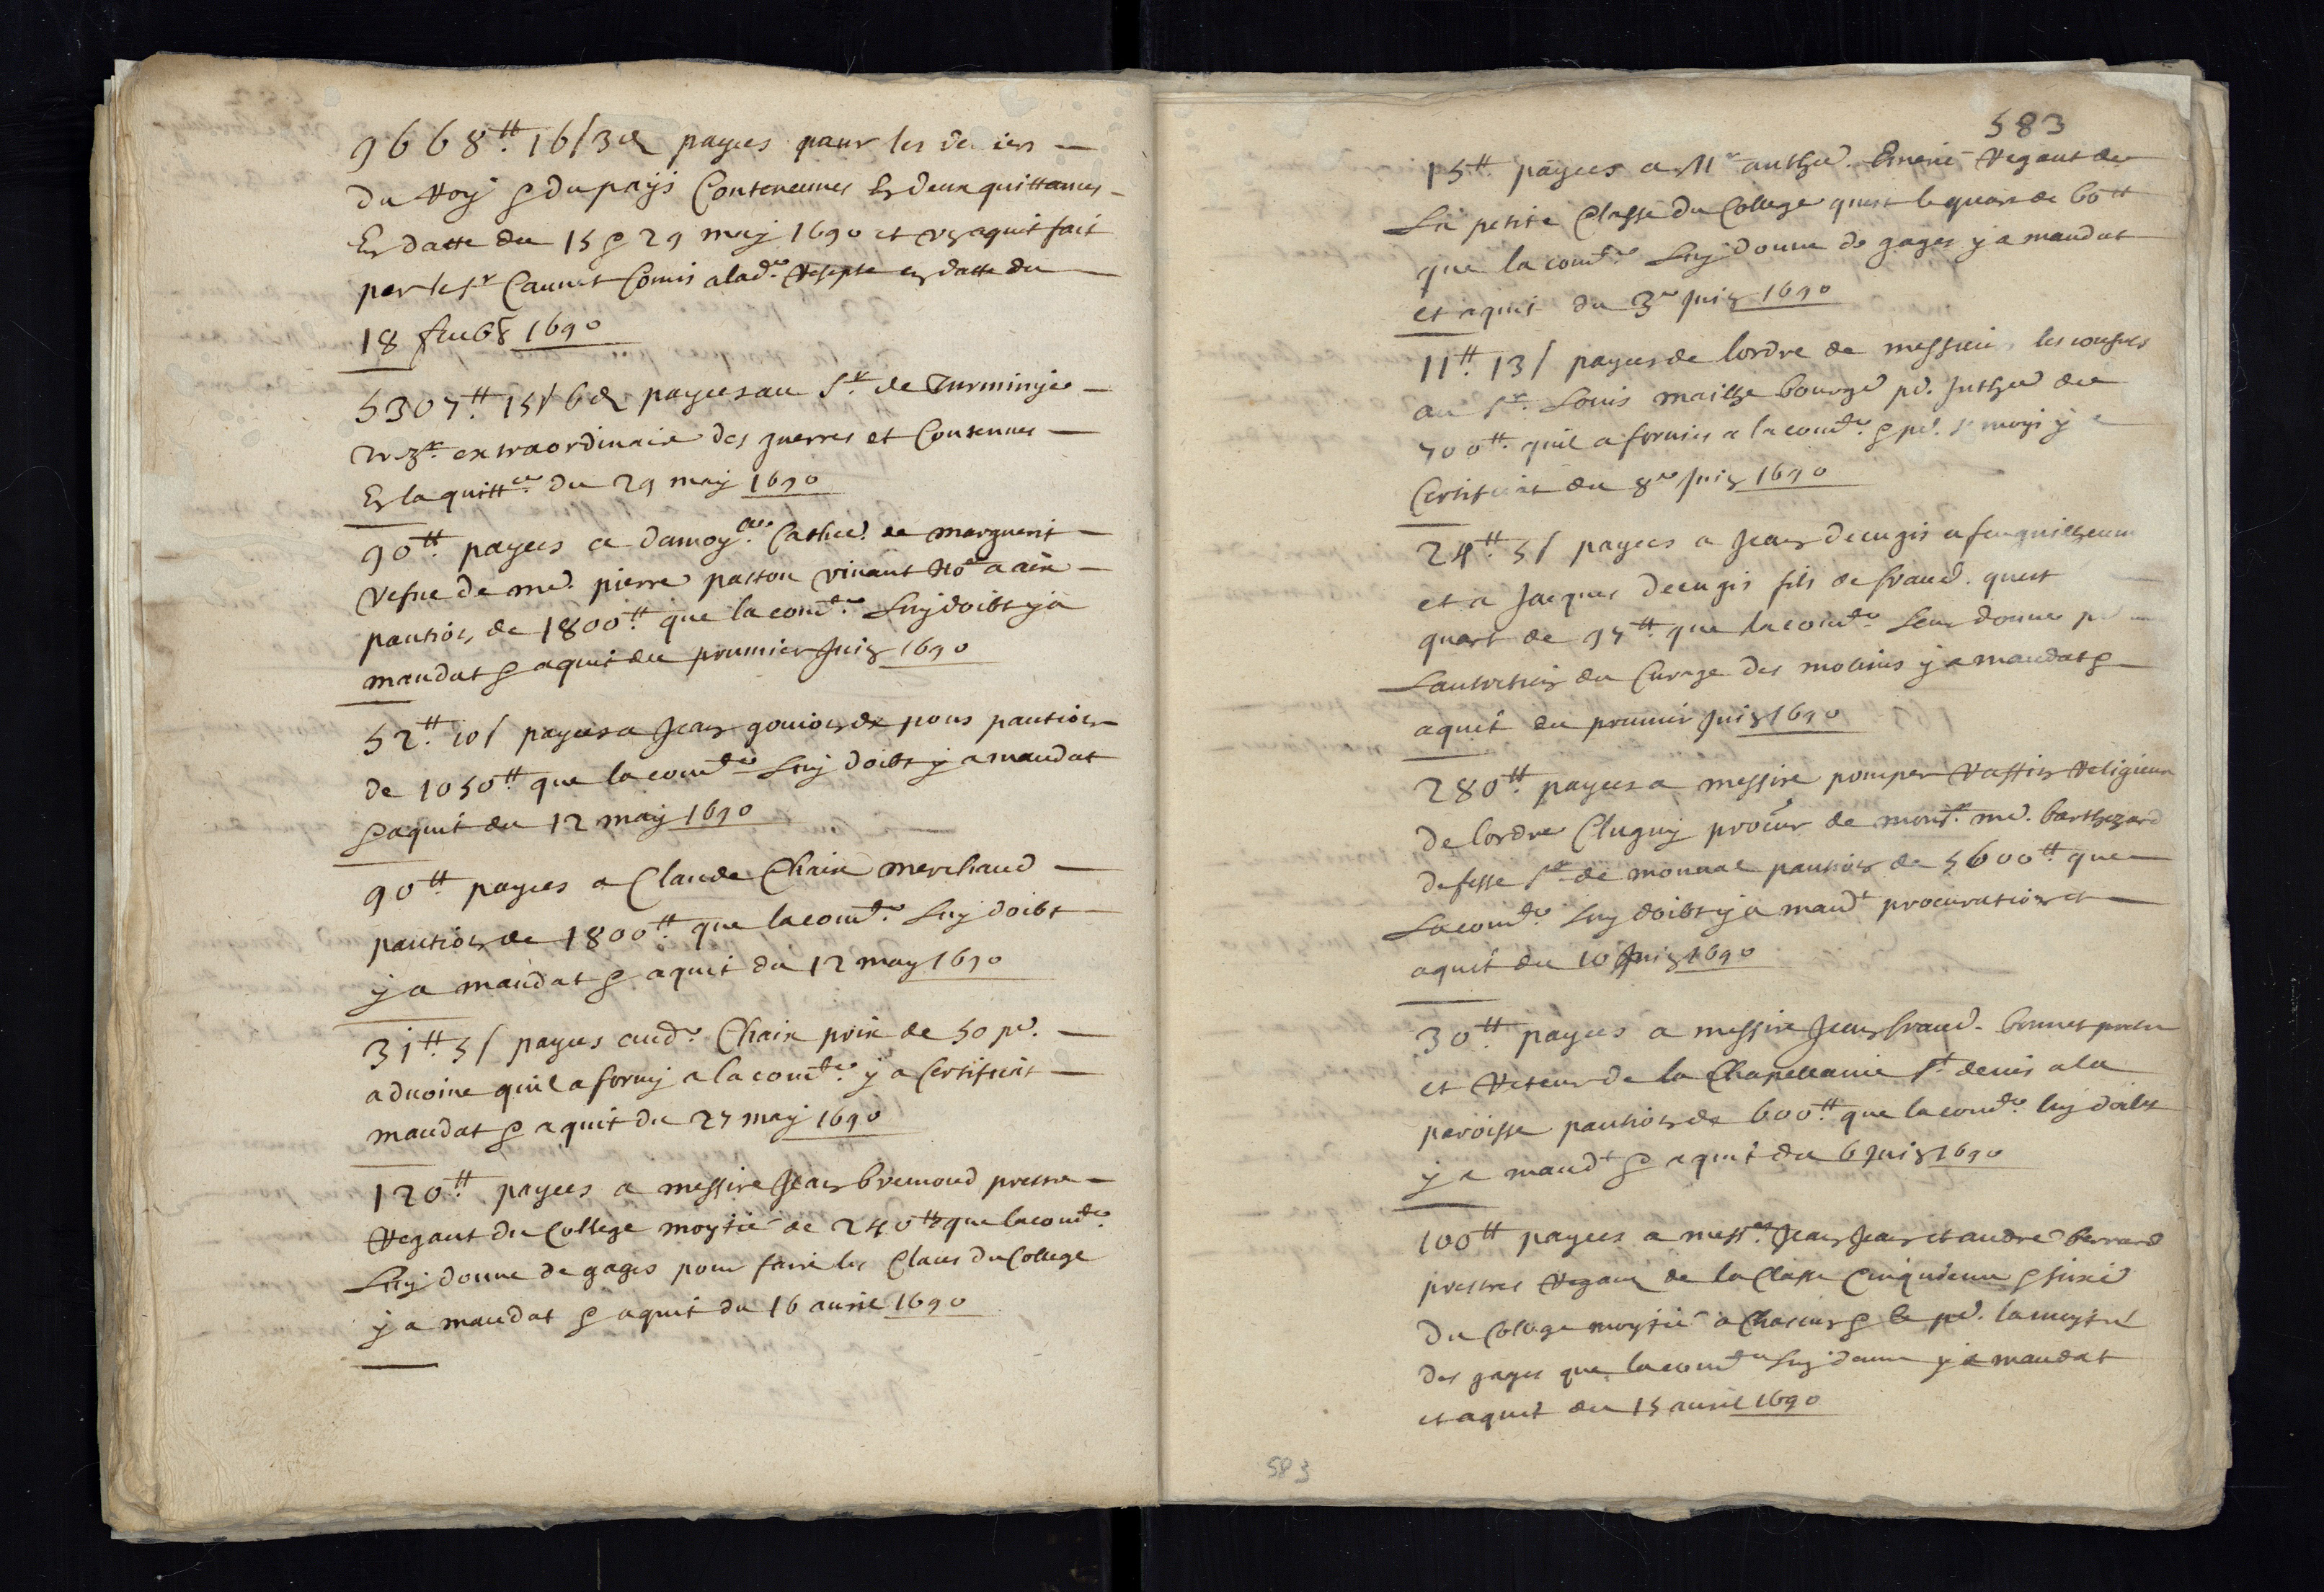 9668ᵗᵗ 16ſ 3d payees pour les deniers
du Roy & du pays Contenues En deux quittances
En datte du 15 & 29 may 1690 et un aquit fait
par le Sʳ Caunet Comis a lad.ᵉ Resepte en datte du
18 1690
5307ᵗᵗ 15ſ 6d payees au Sʳ de Turminyes
extraordinaire des guerres et Contenues
En la quittᶜᵉ du 29 may 1690
90ᵗᵗ payees a damoyˡˡᵉ Cathe. de marguerit
vefve de me. pierre vivant noʳᵉ a aix
pantion de 1800ᵗᵗ que la comtᵉ Luy doibt y a
mandat & aquit du premier Juin 1690
52ᵗᵗ 10ſ payees a Jean de pons pantion
de 1050ᵗᵗ que la comtᵉ Luy doibt y a mandat
& aquit du 12 may 1690
90ᵗᵗ payees a Claude Chaix merchand
pantion de 1800ᵗᵗ que la comtᵉ Luy doibt
y a mandat & aquit du 12 may 1690
31ᵗᵗ 5ſ payees aud.ᵗ Chaix prix de 50 pd.
advoine quil a forny a la comtᵉ y a Certificat
mandat & aquit du 27 may 1690
120ᵗᵗ payees a messire Jean bremond prestre
Regant du College moytie de 240ᵗᵗ que la comtᵉ
Luy donne de gages pour faire les Clases du College
y a mandat & aquit du 16 avril 1690
583
15ᵗᵗ payees a Mʳ anthe. Emerie Regant de
La petite Classe du College quest le quart de 60ᵗᵗ
que la comtᵉ Luy donne de gages y a mandat
et aquit du 3ᵐᵉ Juin 1690
11ᵗᵗ 13ſ payees de lordre de messieurs les consuls
au Sʳ Louis mailhe bourge. pr. Inthe. de
700ᵗᵗ quil a fornies a la comtᵉ & pr. moys y a
Certificat du 8ᵐᵉ Juin 1690
24ᵗᵗ 5ſ payees a Jean decugis a feu guilheaume
et a Jacques decugis fils de frand. quest
quart de 97ᵗᵗ que la comtᵉ Leur donne pr
Lantretien du Curage des molins y a mandat &
aquit du premier Juin 1690
280ᵗᵗ payees a messire pomper Raffin Religieux
de lordre Clugny procur de monsʳ me. barthezard
defesse Sʳ de monval pantion de 5600ᵗᵗ que
La comtᵉ Luy doibt y a mandt procuration et
aquit du 10 Juin 1690
30ᵗᵗ payees a messire Jean frand. bonnet prestre
et Reteur de la Chapellanie St denis a la
paroisse pantion de 600ᵗᵗ que la comtᵉ luy doibt
y a mandt & aquit du 6 Juin 1690
100ᵗᵗ payees a messᵉˢ Jean Jean et andre berrard
prestres Regans de la Classe Cinquieme & sixie
du Colage moytie a Chascun & le pr. la moytie
des gages que la comtᵉ Luy donne y a mandat
et aquit du 15 avril 1690
583